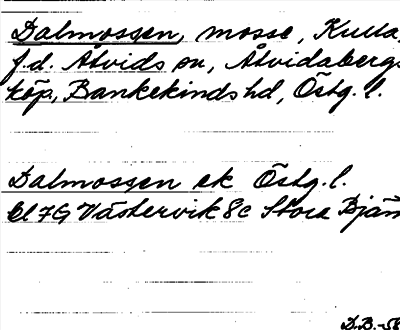 Dalmossen, mosse, Kulla,
f.d. Åtvids sn, Åtvidabergs
köp., Bankekinds hd, Östg. l.
Dalmossen ek Östg. l.
bl 7G Västervik 8c Stora Bjäm
D.B. -56